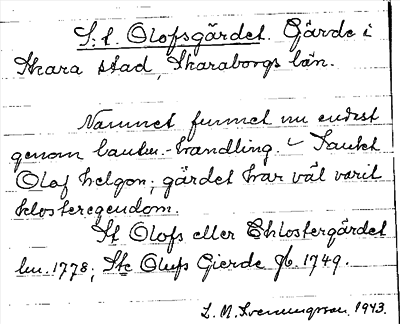 S:t. Olofsgärdet. Gärde i
Skara stad, Skaraborgs län.
Namnet funnet nu endast
genom lantm.-handling. Sankt
Olof helgon; gärdet har väl varit
klosteregendom.
St Olofs eller Chlostergärdet
lm. 1778; Ste Olufs Gierde Jb. 1749.
L. M. Svenungsson 1943.